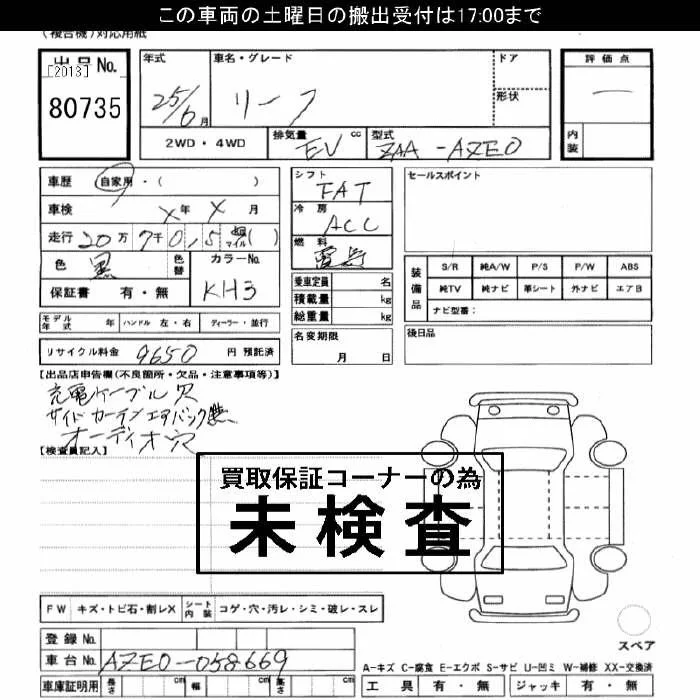 この車両の土曜日の搬出受付は17:00まで
(複合機)対応用紙
出品No. [2013] 80735
年式 25/6月
車名・グレード リーフ
ドア
形状
評価点 ー
内装
2WD・4WD
排気量 EV cc
型式 ZAA-AZE0
車歴 自家用・( )
車検 X年X月
走行 20万7千0,5 マイル( )
色 黒 色替
カラーNo. KH3
保証書 有・無
シフト FAT
冷房 ACC
燃料 電気
乗車定員 名
積載量 kg
総重量 kg
セールスポイント
装備品 S/R 純A/W P/S P/W ABS
純TV 純ナビ 革シート 外ナビ エアB
ナビ型番:
モデル年式 年 ハンドル 左・右 ディーラー・並行
名変期限 月 日
後日品
リサイクル料金 9650 円 預託済
【出品店申告欄(不良箇所・欠品・注意事項等)】
充電ケーブル欠
サイドカーテンエアバック無
オーディオ穴
【検査員記入】
買取保証コーナーの為
未検査
FW キズ・トビ石・割レX シート内装 コゲ・穴・汚レ・シミ・破レ・スレ
登録No.
車台No. AZE0-058669
スペア
A-キズ C-腐食 E-エクボ S-サビ U-凹ミ W-補修 XX-交換済
車庫証明用 長さ cm 幅 cm 高さ cm
工具 有・無 ジャッキ 有・無